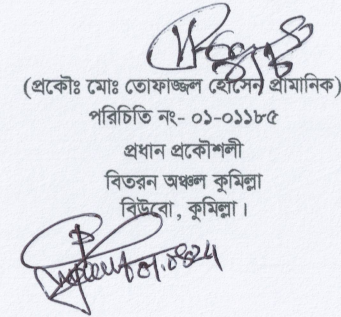 (প্রকৌঃ মোঃ তোফাজ্জল হোসেন প্রামানিক)
পরিচিতি নং- ০১-০১১৮৫
প্রধান প্রকৌশলী
বিতরন অঞ্চল কুমিল্লা
বিউবো, কুমিল্লা।